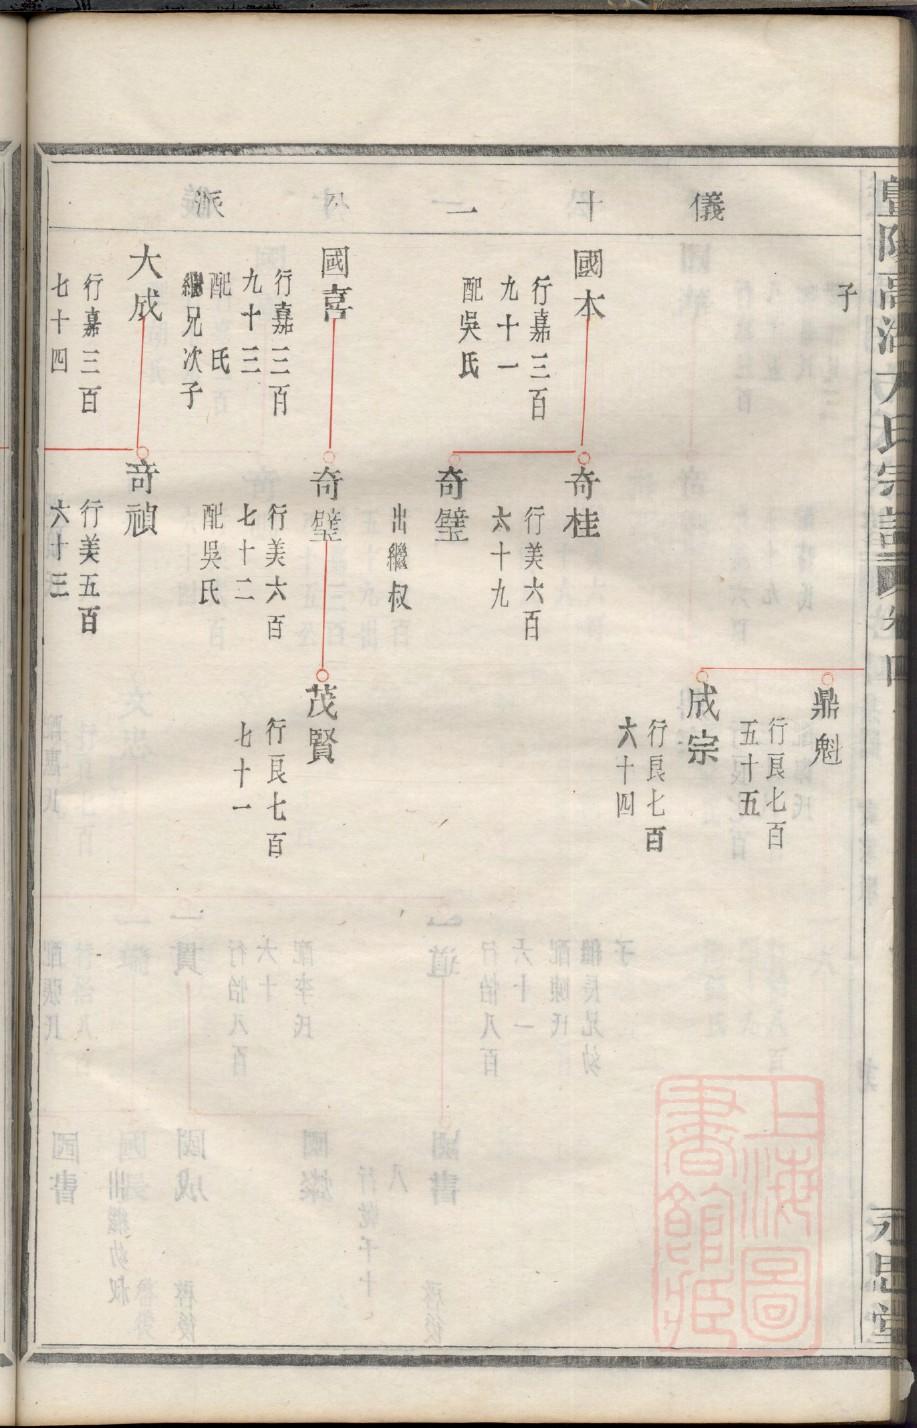 儀十二公派
子
國本
行嘉三百
九十一
配吳氏
國喜
行嘉三百
九十三
配 氏
繼兄次子
大成
行嘉三百
七十四
奇桂
行美六百
六十九
奇璧
出繼叔
奇璧
行美六百
七十二
配吳氏
奇禎
行美五百
六十三
鼎魁
行良七百
五十五
成宗
行良七百
六十四
茂賢
行良七百
七十一
氏宗譜
卷四
永思堂
上海圖
書館藏